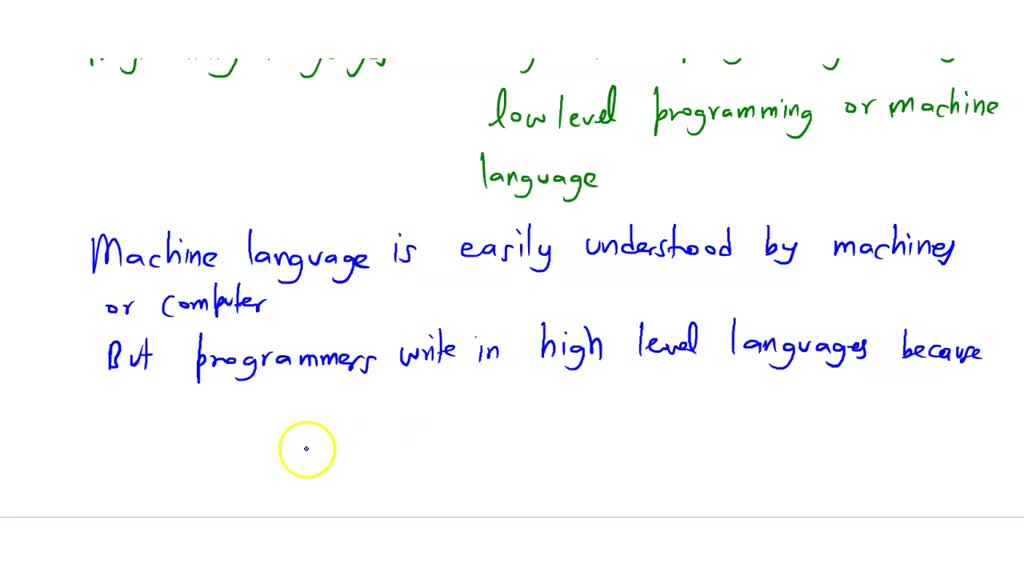 low level programming or machine
language
Machine language is easily understood by machines
or computer
But programmers write in high level languages because